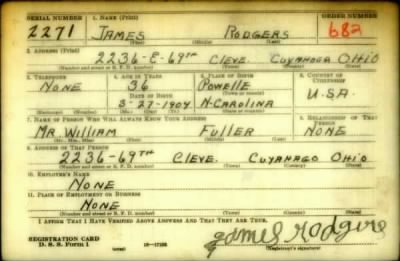 SERIAL NUMBER 1. NAME (Print) ORDER NUMBER
2271 JAMES RODGERS 682
(First) (Middle) (Last)
2. ADDRESS (Print)
2236-E-69TH CLEVE. CUYAHOGA OHIO
(Number and street or R. F. D. number) (Town) (County) (State)
3. TELEPHONE 4. AGE IN YEARS 5. PLACE OF BIRTH 6. COUNTRY OF CITIZENSHIP
NONE 36 POWELLE U.S.A.
DATE OF BIRTH (Town or county)
3-27-1904 N-CAROLINA
(Exchange) (Number) (Mo.) (Day) (Yr.) (State or country)
7. NAME OF PERSON WHO WILL ALWAYS KNOW YOUR ADDRESS 8. RELATIONSHIP OF THAT PERSON
MR. WILLIAM FULLER NONE
(Mr., Mrs., Miss) (First) (Middle) (Last)
9. ADDRESS OF THAT PERSON
2236-69TH CLEVE. CUYAHAGO OHIO
(Number and street or R. F. D. number) (Town) (County) (State)
10. EMPLOYER'S NAME
NONE
11. PLACE OF EMPLOYMENT OR BUSINESS
NONE
(Number and street or R. F. D. number) (Town) (County) (State)
I AFFIRM THAT I HAVE VERIFIED ABOVE ANSWERS AND THAT THEY ARE TRUE.
REGISTRATION CARD
D. S. S. Form 1 16-17105 James Rodgers
(Registrant's signature)